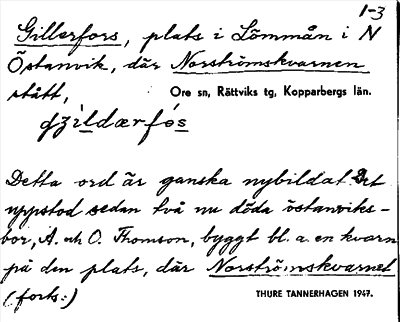 1-3
Gillerfors, plats i Lömmån i N
Östanvik, där Norströmskvarnen
stått,
Ore sn, Rättviks tg, Kopparbergs län.
Detta ord är ganska nybildat. Det
uppstod sedan två nu döda östanviks-
bor, A. och O. Thomson, byggt bl. a. en kvarn
på den plats, där Norströmskvarnet
(forts.)
THURE TANNERHAGEN 1947.